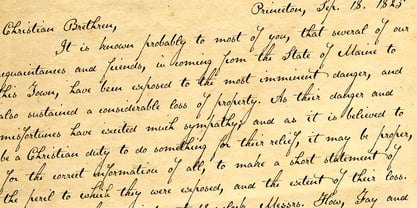 Princeton, Sep. 18. 1825
Christian Brethren,
It is known probably to most of you, that several of our
equaintances and friends, in coming from the State of Maine to
this Town, have been exposed to the most imminent danger, and
also sustained a considerable loss of property. As their danger and
misfortunes have excited much sympathy, and as it is believed to
be a Christian duty to do something for their relief, it may be proper,
for the correct information of all, to make a short statement of
the peril to which they were exposed, and the extent of their loss.
Messrs. How, Fay and